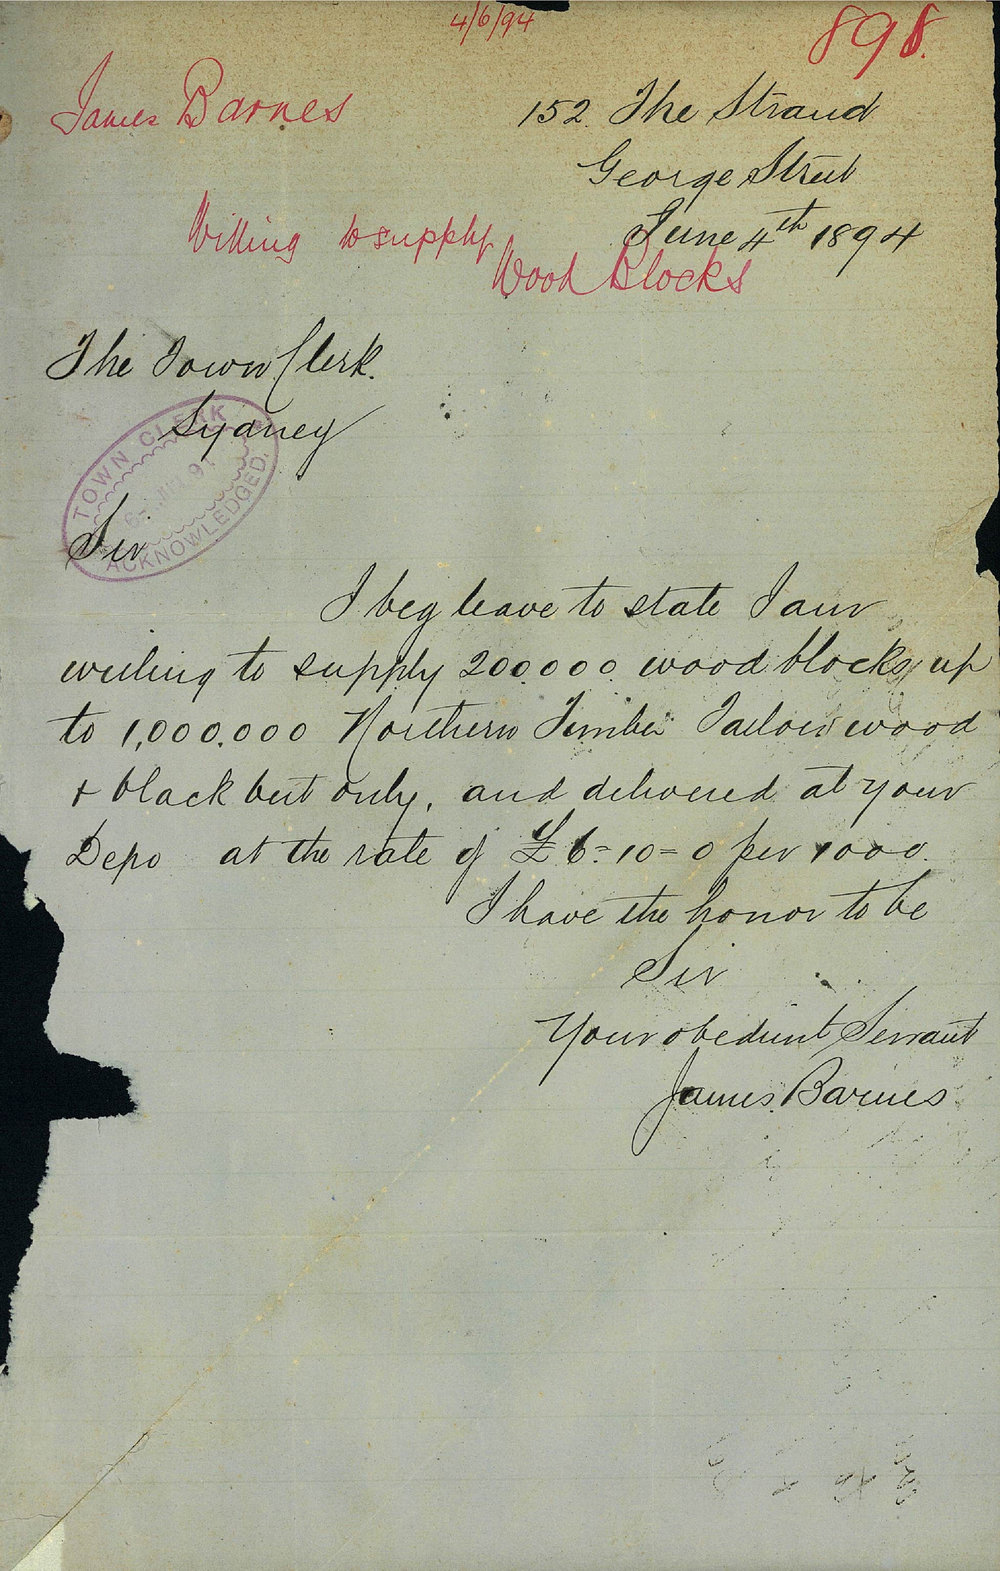 4/6/94
898.
James Barnes
152 The Strand
George Street
June 4th 1894
Willing to supply
Wood Blocks
The Town Clerk.
Sydney
TOWN CLERK
ACKNOWLEDGED.
Sir
I beg leave to state I am
willing to supply 200.000 wood blocks up
to 1,000.000 Northern Timber Tallow wood
& black but only, and delivered at your
Depo at the rate of £6=10=0 per 1000.
I have the honor to be
Sir
Your obedient Servant
James Barnes